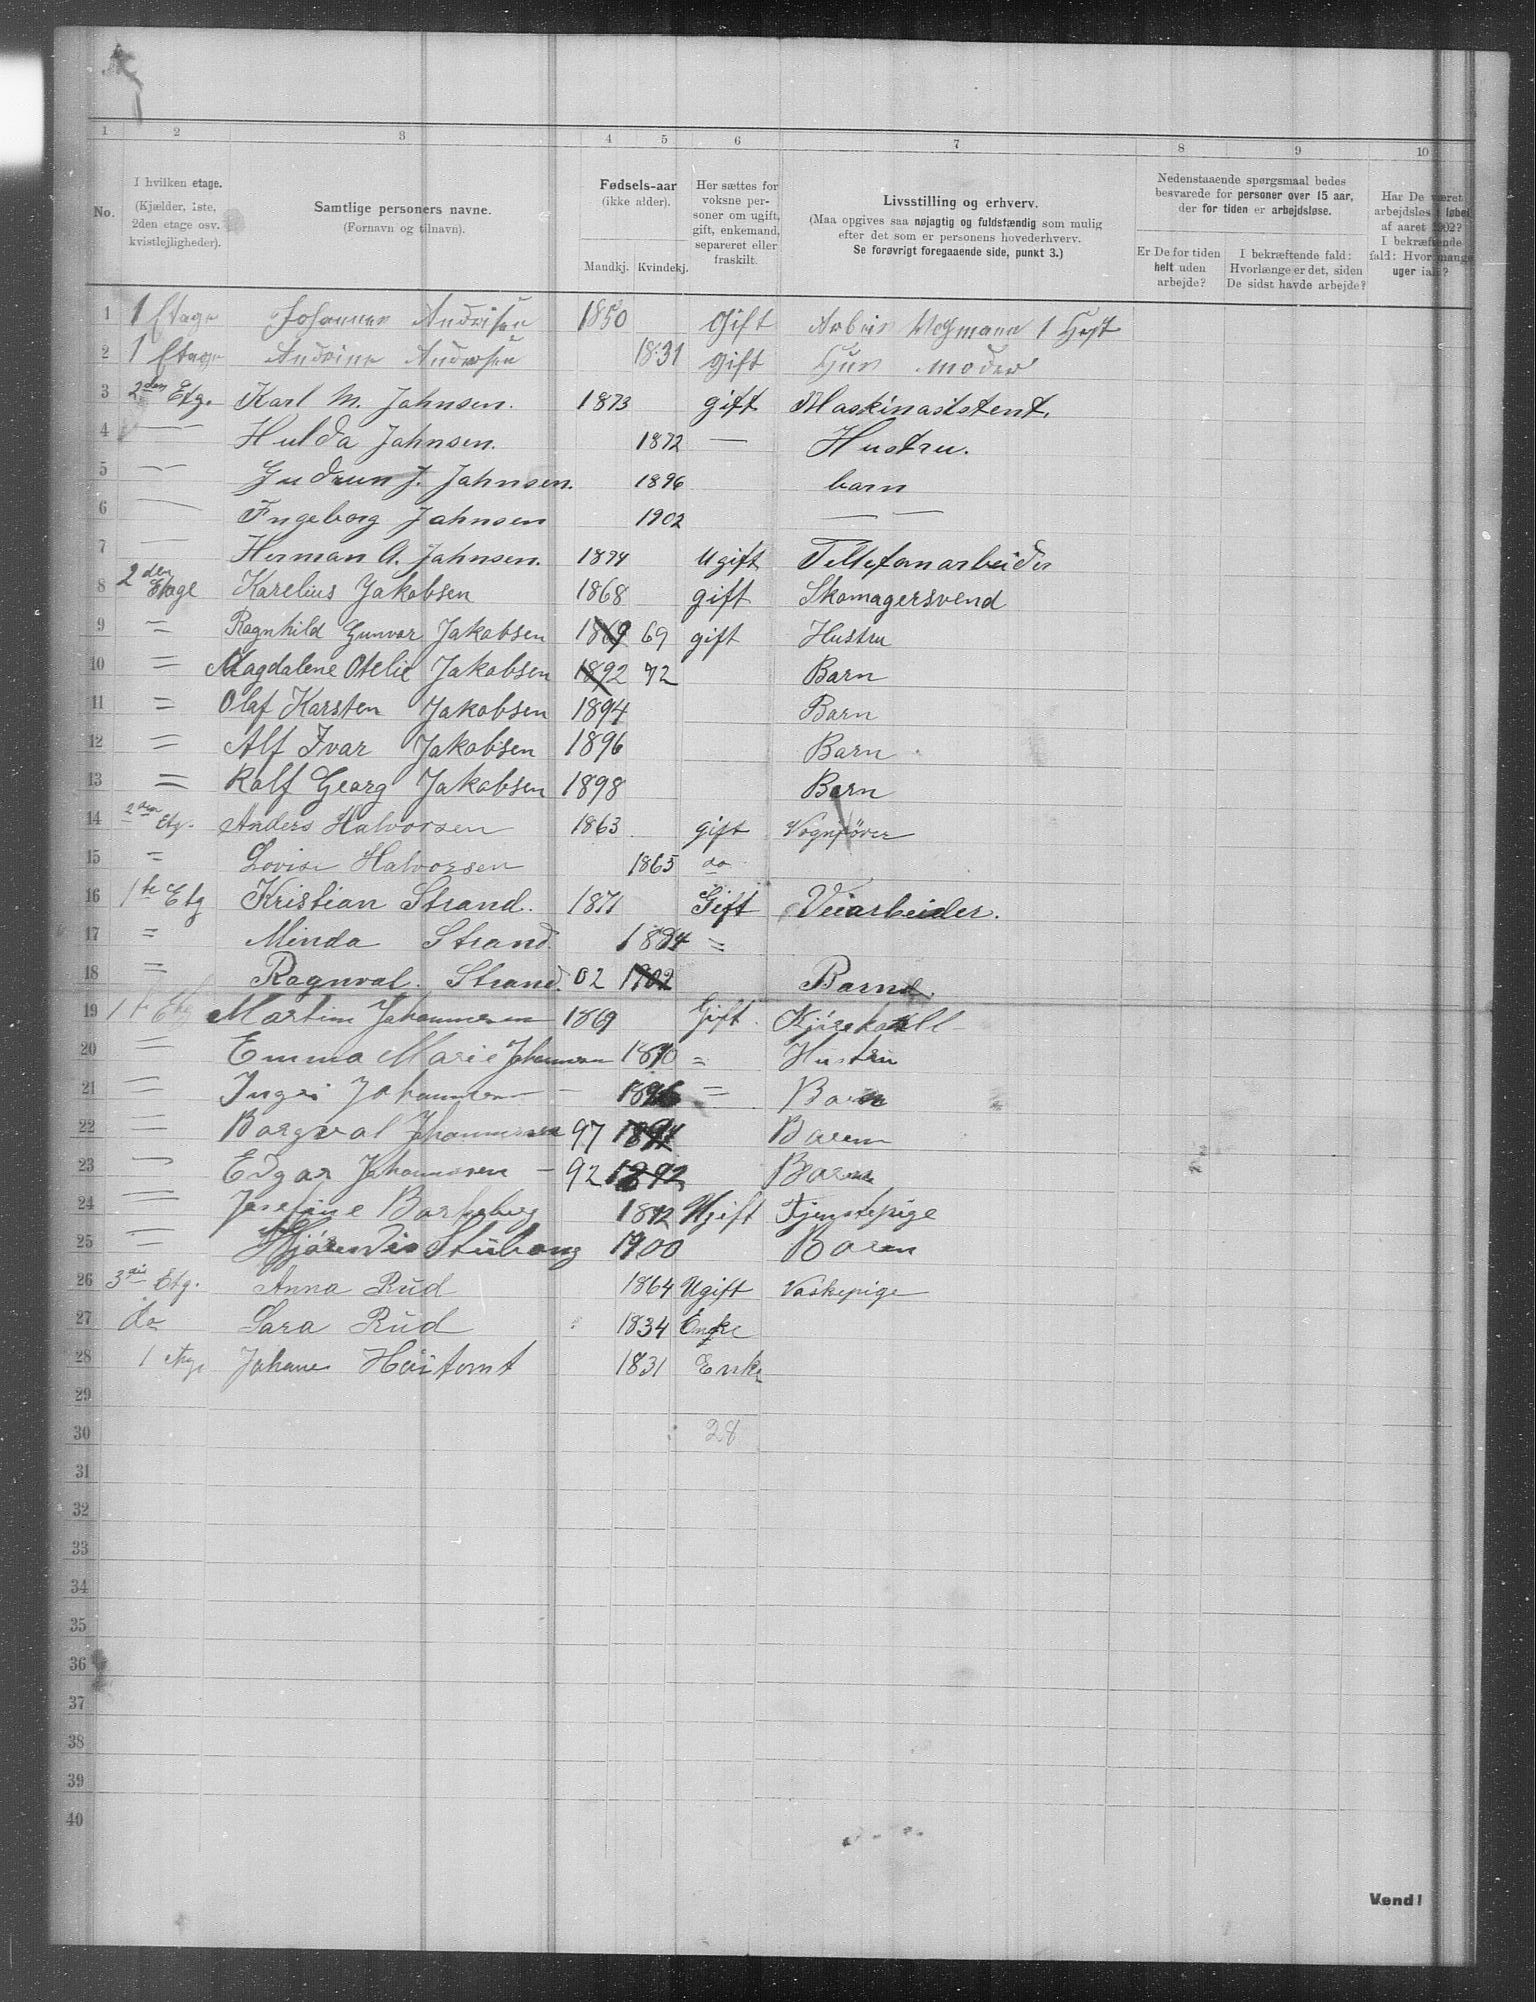 1 2 3 4 5 6 7 8 9 10
No.
I hvilken etage.
(Kjælder, 1ste,
2den etage osv.
kvistlejligheder).
Samtlige personers navne.
(Fornavn og tilnavn).
Fødsels-aar
(ikke alder).
Mandkj. Kvindekj.
Her sættes for
voksne per-
soner om ugift,
gift, enkemand,
separeret eller
fraskilt.
Livsstilling og erhverv.
(Maa opgives saa nøjagtig og fuldstændig som mulig
efter det som er personens hovederhverv.
Se forøvrigt foregaaende side, punkt 3.)
Nedenstaaende spørgsmaal bedes
besvarede for personer over 15 aar,
der for tiden er arbejdsløse.
Er De for tiden
helt uden
arbejde?
I bekræftende fald:
Hvorlænge er det, siden
De sidst havde arbejde?
Har De været
arbejdsløs i løbet
af aaret 1902?
I bekræftende
fald: Hvor mange
uger ialt?
1 1 Etage Johannes Andersen 1850 Gift 1 Hest
2 1 Etage Andrine Andersen 1831 gift Hus moder
3 2den Etg. Karl M. Jahnsen. 1873 gift Maskinasistent.
4 — Hulda Jahnsen. 1872 — Hustru.
5 — Gudrun J. Jahnsen. 1896 barn
6 — Ingeborg Jahnsen 1902 — —
7 — Herman A. Jahnsen. 1874 Ugift Tellefonarbeider
8 2den Etage Karelius Jakobsen 1868 gift Skomagersvend
9 = Ragnhild Gunvor Jakobsen 1869 69 gift Hustru
10 = Magdalene Otelie Jakobsen 1892 92 Barn
11 = Olaf Karsten Jakobsen 1894 Barn
12 = Alf Ivar Jakobsen 1896 Barn
13 = Ralf Georg Jakobsen 1898 Barn
14 2den Etg. Anders Halvorsen 1863 gift Vognfører
15 = Lovise Halvorsen 1865 do
16 1te Etg Kristian Strand. 1871 Gift Veiarbeider.
17 = Minda Strand. 1874 =
18 = Ragnval. Strand. 02 1902 Barn
19 1t Etg Martin Johannesen 1869 Gift Kjørekall
20 = Emma Marie Johannesen 1870 = Hustru
21 = Inger Johannesen — 1896 = Barn
22 = Borgval Johannesen 97 1897 Baren
23 = Edgar Johannesen — 92 1892 Baren
24 = Josefine 1872 Ugift Tjenstepige
25 = Stubang 1900 Baren
26 3die Etg. Anna Rud 1864 Ugift Vaskepige
27 do Sara Rud 1834 Enke
28 1 etg. Johane 1831 Enke
29
30 28
31
32
33
34
35
36
37
38
39
40
Vend!